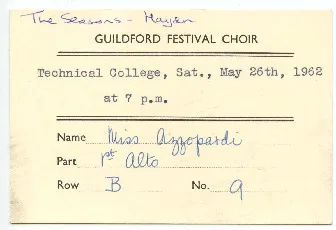 The Seasons - Haydn
GUILDFORD FESTIVAL CHOIR
Technical College, Sat., May 26th, 1962
at 7 p.m.
Name Miss Azzopardi
Part 1st Alto
Row B No. 9